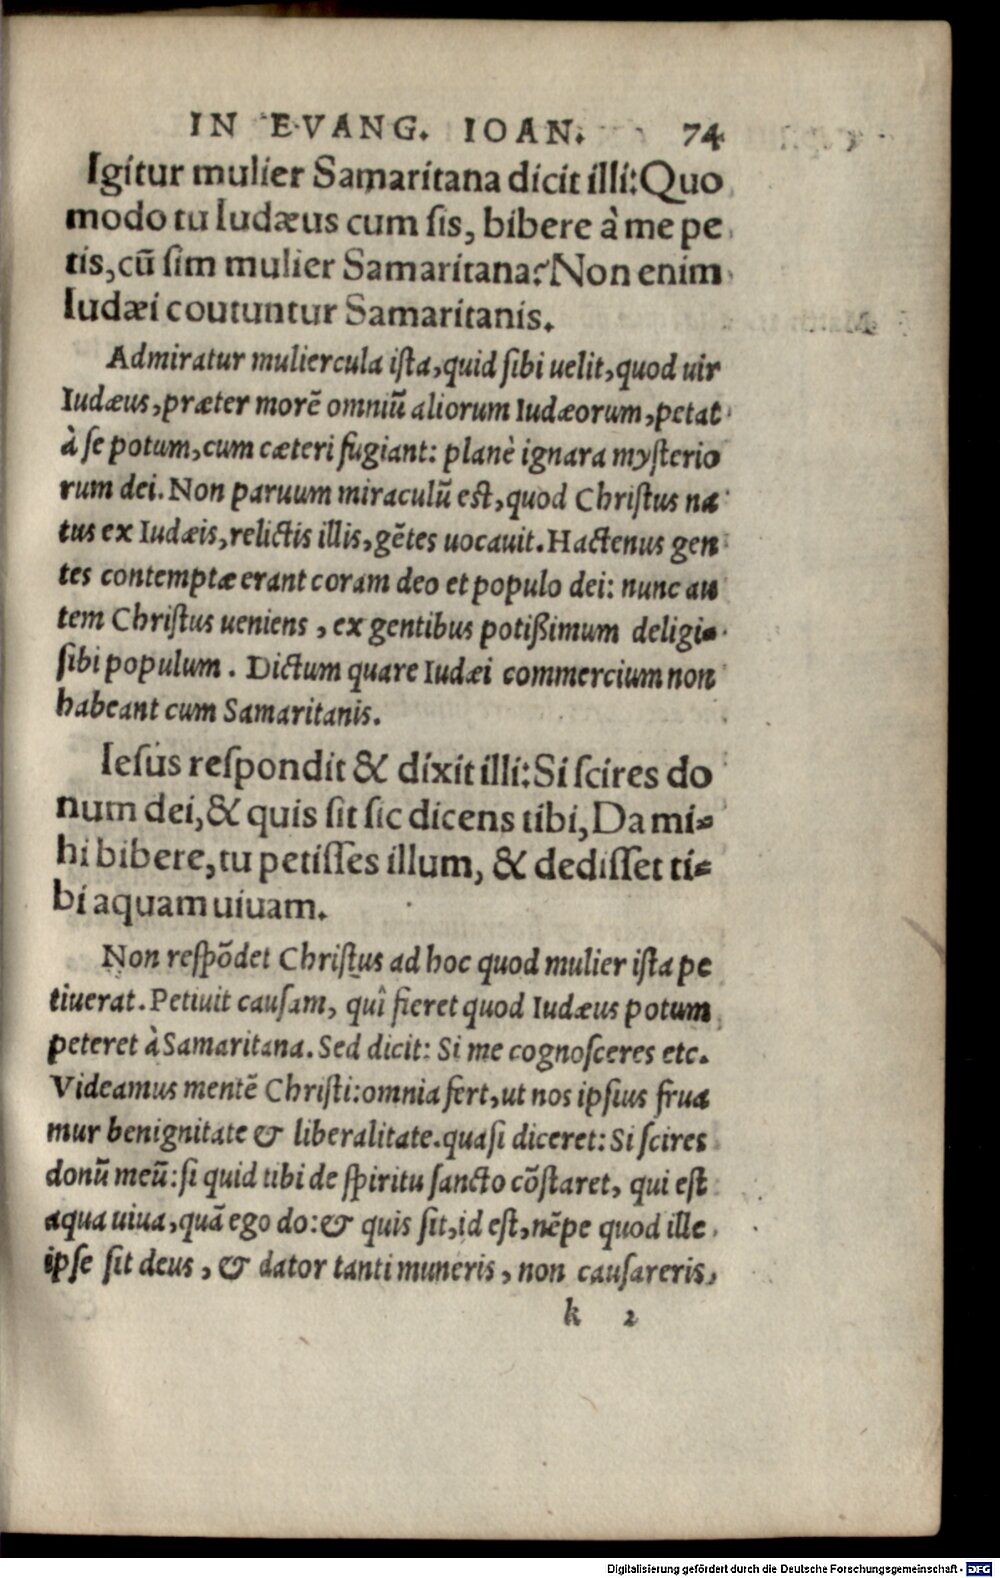 IN EVANG. IOAN. 74
Igitur mulier Samaritana dicit illi: Quo
modo tu Iudæus cum ſis, bibere à me pe
tis, cũ ſim mulier Samaritana? Non enim
Iudæi coutuntur Samaritanis.
Admiratur muliercula iſta, quid ſibi uelit, quod uir
Iudæus, præter morẽ omniũ aliorum Iudæorum, petat
à ſe potum, cum cæteri fugiant: planè ignara myſterio
rum dei. Non paruum miraculũ eſt, quod Chriſtus na
tus ex Iudæis, relictis illis, gẽtes uocauit. Hactenus gen
tes contemptæ erant coram deo et populo dei: nunc au
tem Chriſtus ueniens, ex gentibus potißimum deligi-
ſibi populum. Dictum quare Iudæi commercium non
habeant cum Samaritanis.
Ieſus reſpondit & dixit illi: Si ſcires do
num dei, & quis ſit ſic dicens tibi, Da mi-
hi bibere, tu petiſſes illum, & dediſſet ti-
bi aquam uiuam.
Non reſpõdet Chriſtus ad hoc quod mulier iſta pe
tiuerat. Petiuit cauſam, quî fieret quod Iudæus potum
peteret à Samaritana. Sed dicit: Si me cognoſceres etc.
Videamus mentẽ Chriſti: omnia fert, ut nos ipſius frua
mur benignitate & liberalitate. quaſi diceret: Si ſcires
donũ meũ: ſi quid tibi de ſpiritu ſancto cõſtaret, qui eſt
aqua uiua, quã ego do: & quis ſit, id eſt, nẽpe quod ille
ipſe ſit deus, & dator tanti muneris, non cauſareris,
k 2
Digitalisierung gefördert durch die Deutsche Forschungsgemeinschaft - DFG